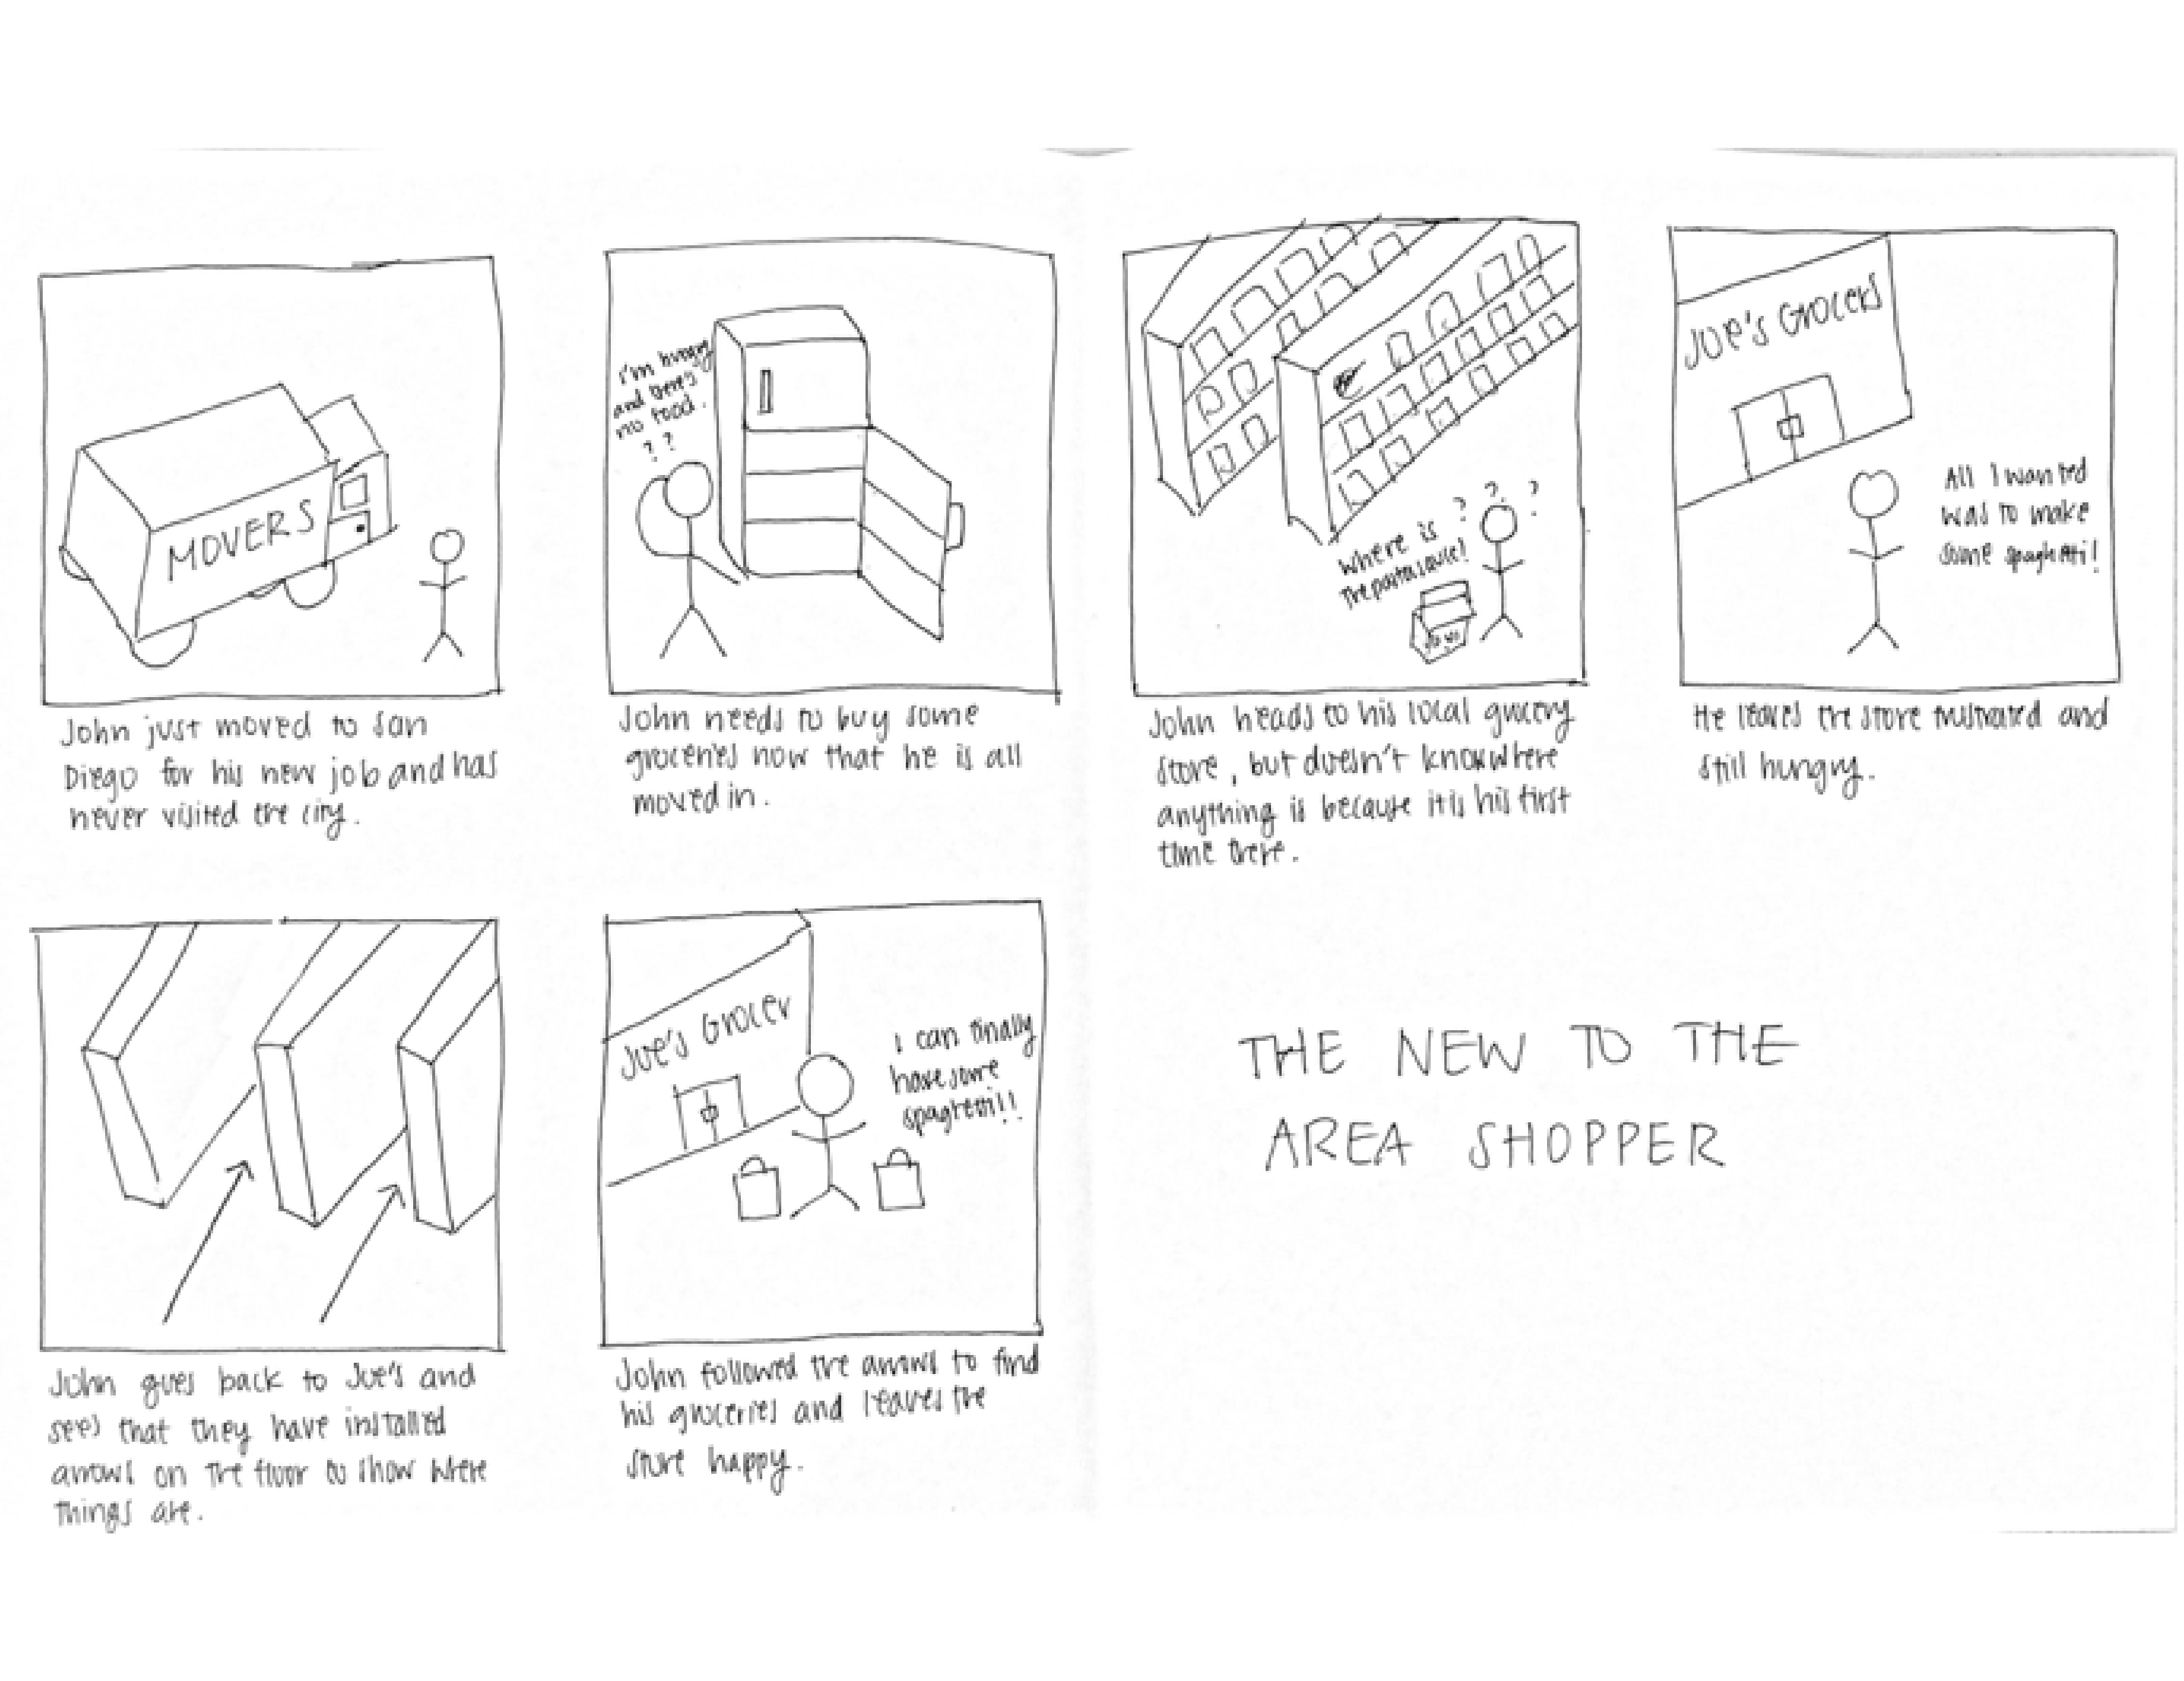 MOVERS
John just moved to San
Diego for his new job and has
never visited the city.
I'm hungry
and there's
no food.
??
John needs to buy some
groceries now that he is all
moved in.
? ? ?
Where is
the pasta sauce!
John heads to his local grocery
store, but doesn't know where
anything is because it is his first
time there.
JOE'S GROCERS
All I wanted
was to make
some spaghetti!
He leaves the store frustrated and
still hungry.
John goes back to Joe's and
sees that they have installed
arrows on the floor to show where
things are.
JOE'S GROCER
I can finally
have some
spaghetti!!
John followed the arrows to find
his groceries and leaves the
store happy.
THE NEW TO THE
AREA SHOPPER